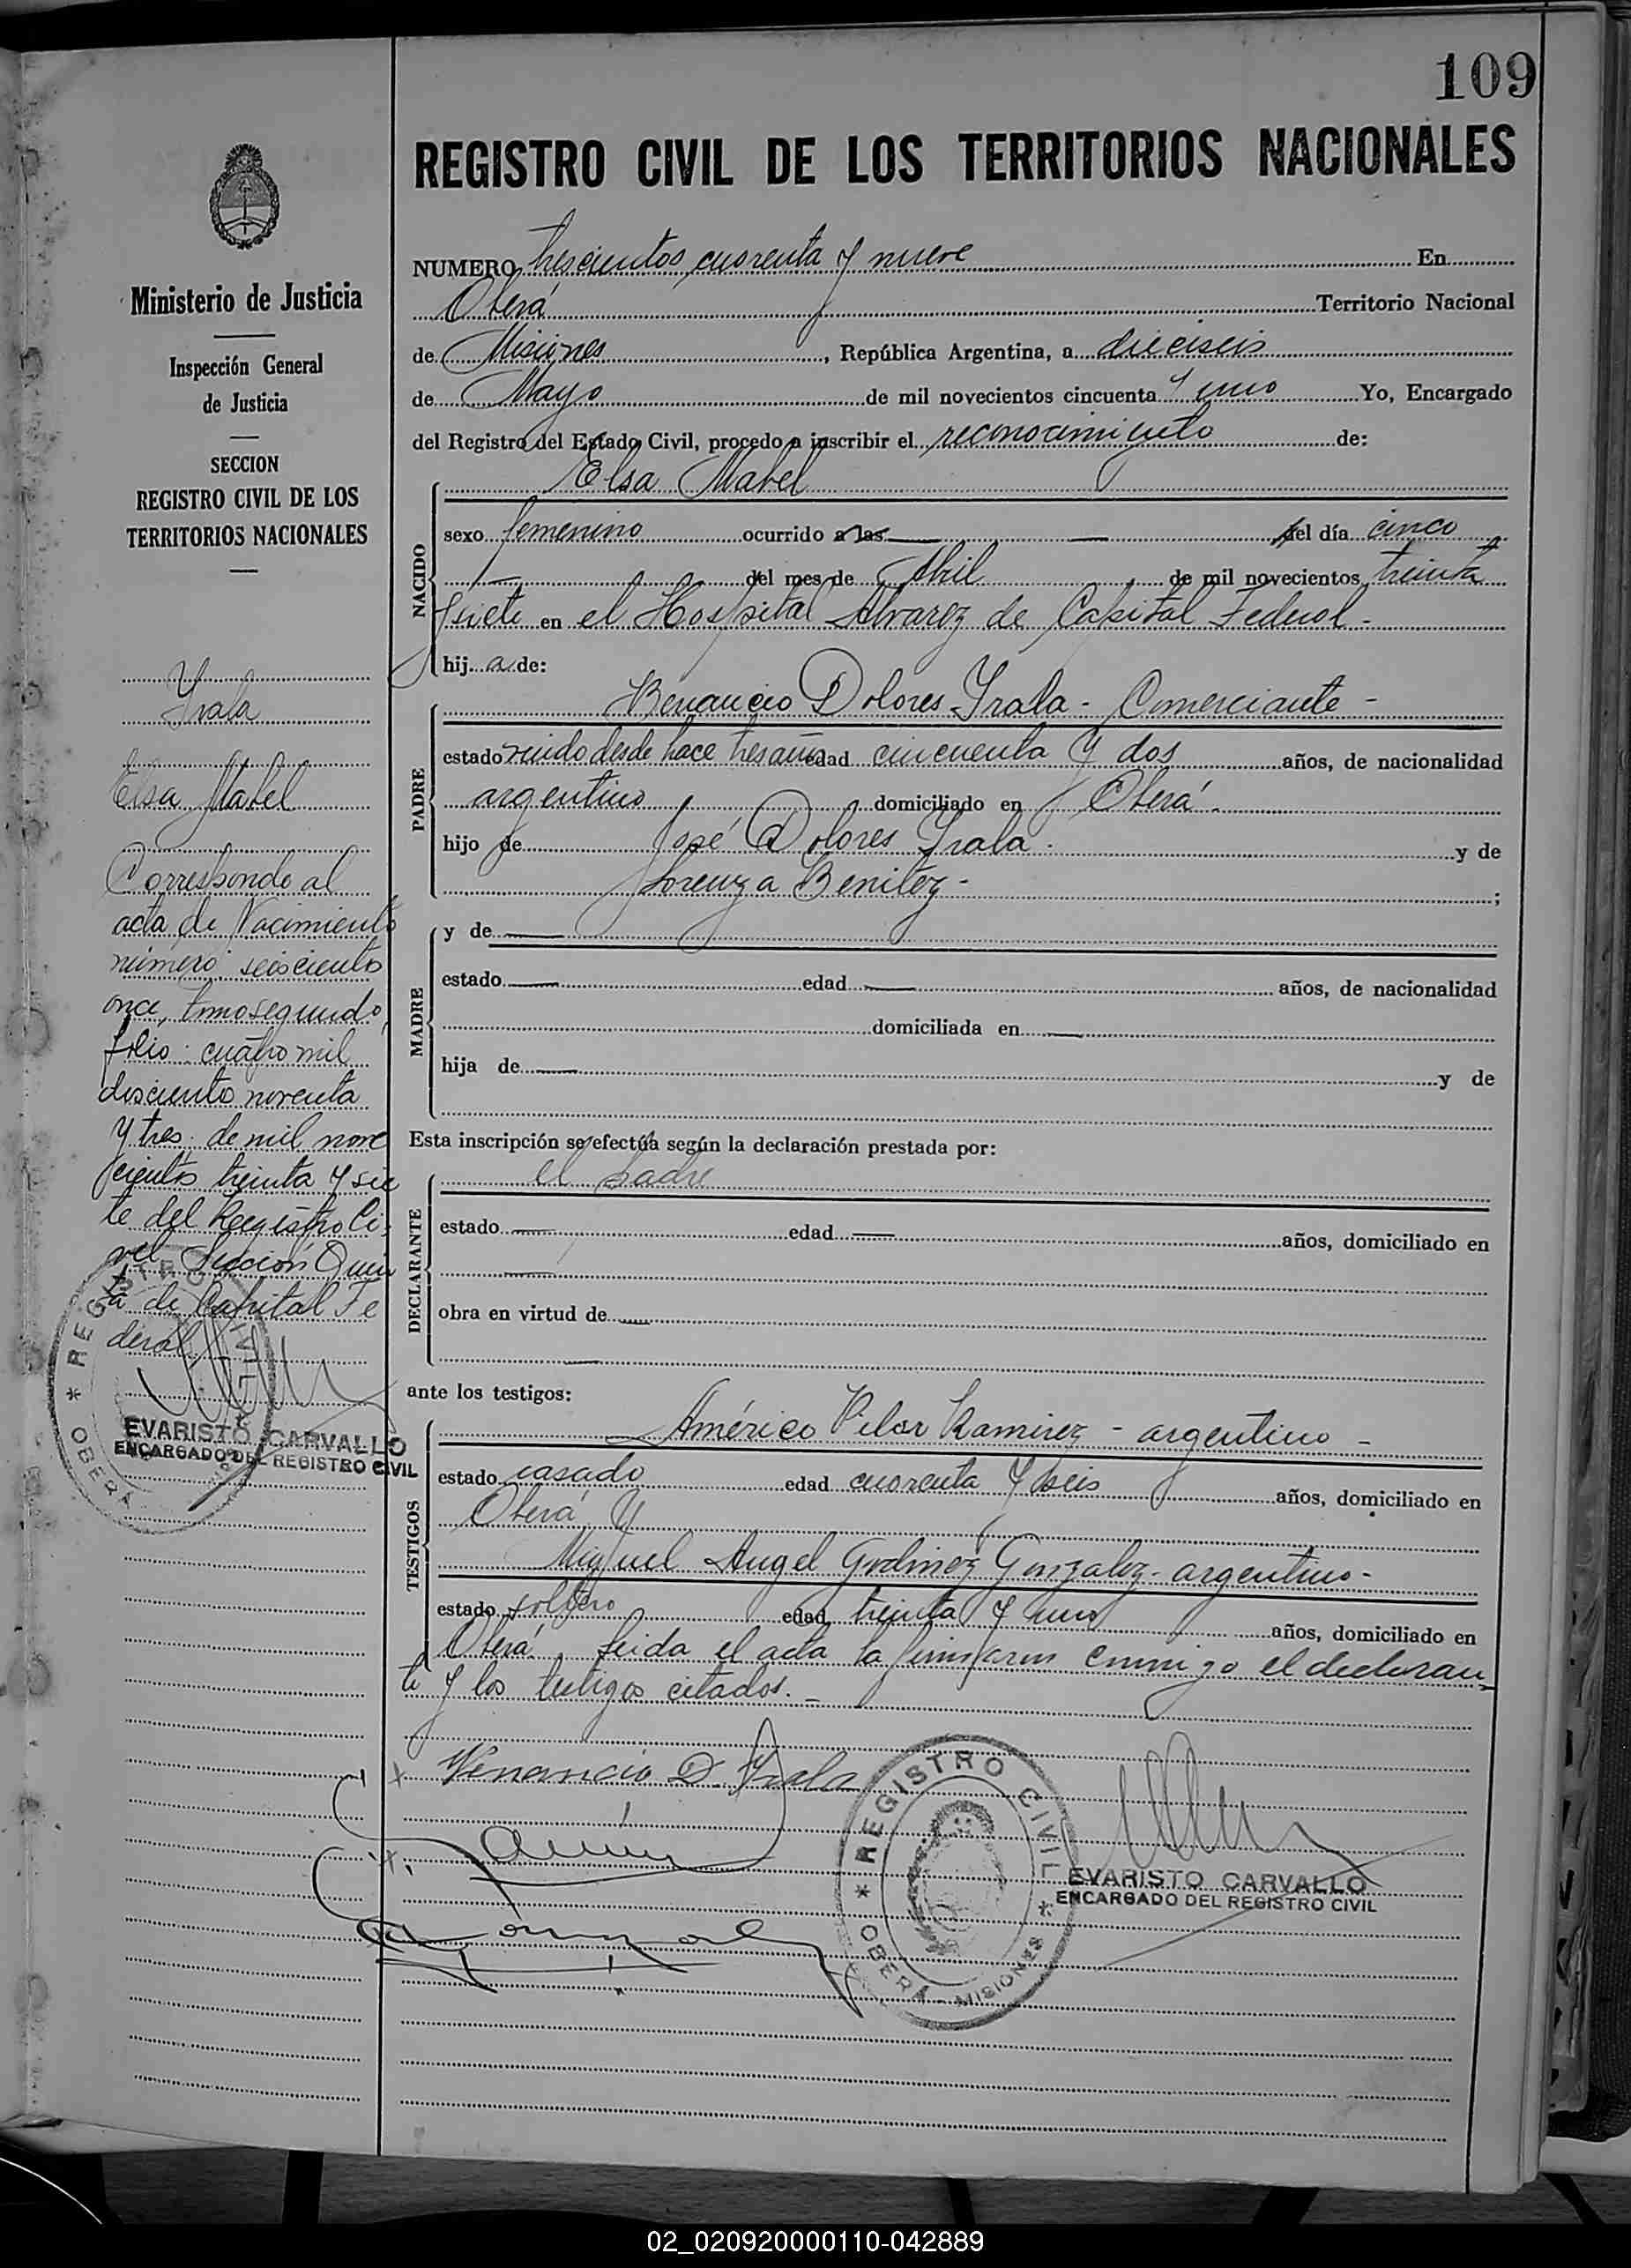 109
REGISTRO CIVIL DE LOS TERRITORIOS NACIONALES
Ministerio de Justicia
Inspección General
de Justicia
SECCION
REGISTRO CIVIL DE LOS
TERRITORIOS NACIONALES
Yrala
Elsa Mabel
Corresponde al
acta de Nacimiento
número seisciento
once, tomo segundo,
folio: cuatro mil
dosciento noventa
y tres, de mil nove
cientos treinta y sie
te del Registro Ci-
vil Sección Quin
ta de Capital Fe
deral
REGISTRO CIVIL
OBERÁ
EVARISTO CARVALLO
ENCARGADO DEL REGISTRO CIVIL
NUMERO trescientos cuarenta y nueve En
Oberá Territorio Nacional
de Misiones, República Argentina, a dieciseis
de Mayo de mil novecientos cincuenta y uno Yo, Encargado
del Registro del Estado Civil, procedo a inscribir el reconocimiento de:
NACIDO
Elsa Mabel
sexo femenino ocurrido a las — del día cinco
— del mes de Abril de mil novecientos treinta
y siete en el Hospital Alvarez de Capital Federal -
hija de:
PADRE
Benancio Dolores Yrala - Comerciante -
estado viudo desde hace tres años edad cincuenta y dos años, de nacionalidad
argentino domiciliado en Oberá.
hijo de José Dolores Yrala y de
Lorenza Benitez - ;
MADRE
y de —
estado — edad — años, de nacionalidad
domiciliada en —
hija de — y de
Esta inscripción se efectúa según la declaración prestada por:
DECLARANTE
el padre
estado — edad — años, domiciliado en
—
obra en virtud de —
—
ante los testigos:
TESTIGOS
Américo Pilar Ramirez - argentino -
estado casado edad cuarenta y seis años, domiciliado en
Oberá y
Miguel Angel Gonzalez - argentino -
estado soltero edad treinta y uno años, domiciliado en
Oberá. Leida el acta la firmaron conmigo el declaran-
te y los testigos citados. -
x Venancio D. Yrala
REGISTRO CIVIL
OBERÁ - MISIONES
EVARISTO CARVALLO
ENCARGADO DEL REGISTRO CIVIL
02_020920000110-042889